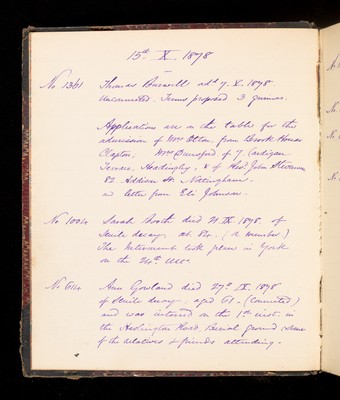 15th X. 1878
No 1361 Thomas Burwell adt 7. X. 1878
Unconnected. Terms proposed 3 guineas.
Applications are on the table for the
admission of Mrs Etton, from Brook House
Clapton; Mrs Dunsford of 7. Cardigan
Terrace, Headingley, & of Hod John Stevenson
82. Addison St. Nottingham.
a letter from Eli Johnson.
No 1004 Sarah Booth died 21. IX 1878. of
Senile decay, at. 84. (a member)
The Interment took place in York
on the 24th
No 614 Ann Gowland died 27th IX. 1878
of Senile decay. aged 61. (Connected)
and was interred on the 1st inst. in
the Heslington Road, Burial ground some
of the relatives & friends attending.